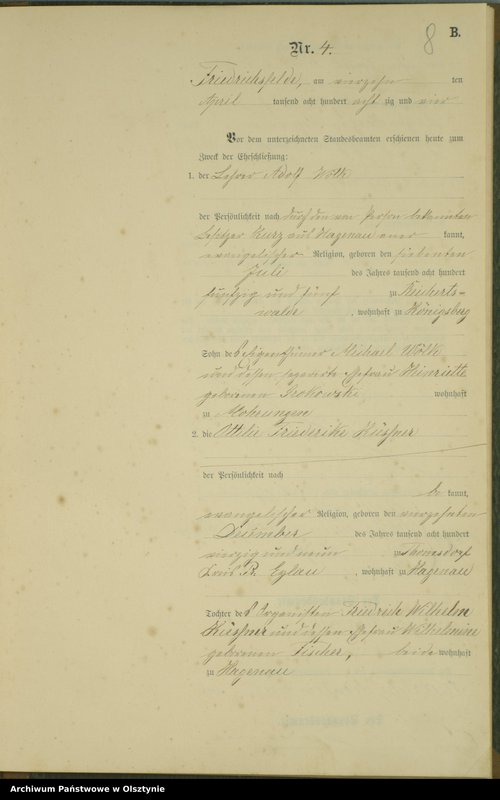 8 B.
Nr. 4.
Friedrichsfelde, am vierzehn ten
April tausend acht hundert acht zig und vier
Vor dem unterzeichneten Standesbeamten erschienen heute zum
Zweck der Eheschließung:
1. der Lehrer Adolf Wölk
der Persönlichkeit nach durch den von Person bekannten
Besitzer Kurz aus Hagenau kannt,
evangelischer Religion, geboren den siebenten
Juli des Jahres tausend acht hundert
fünfzig und fünf zu Reicherts-
walde, wohnhaft zu Königsberg
Sohn des Eigenthümer Michael Wölk
und dessen Ehefrau Henriette
geborenen wohnhaft
zu Mohrungen
2. die Ottilie Friederike Küssner
der Persönlichkeit nach
be kannt,
evangelischer Religion, geboren den vierzehnten
Dezember des Jahres tausend acht hundert
vierzig und neun zu Thomsdorf
Kreis Pr. Eylau, wohnhaft zu Hagenau
Tochter des Organisten Friedrich Wilhelm
Küssner und dessen Ehefrau Wilhelmine
geborenen Fischer, beide wohnhaft
zu Hagenau
Archiwum Państwowe w Olsztynie